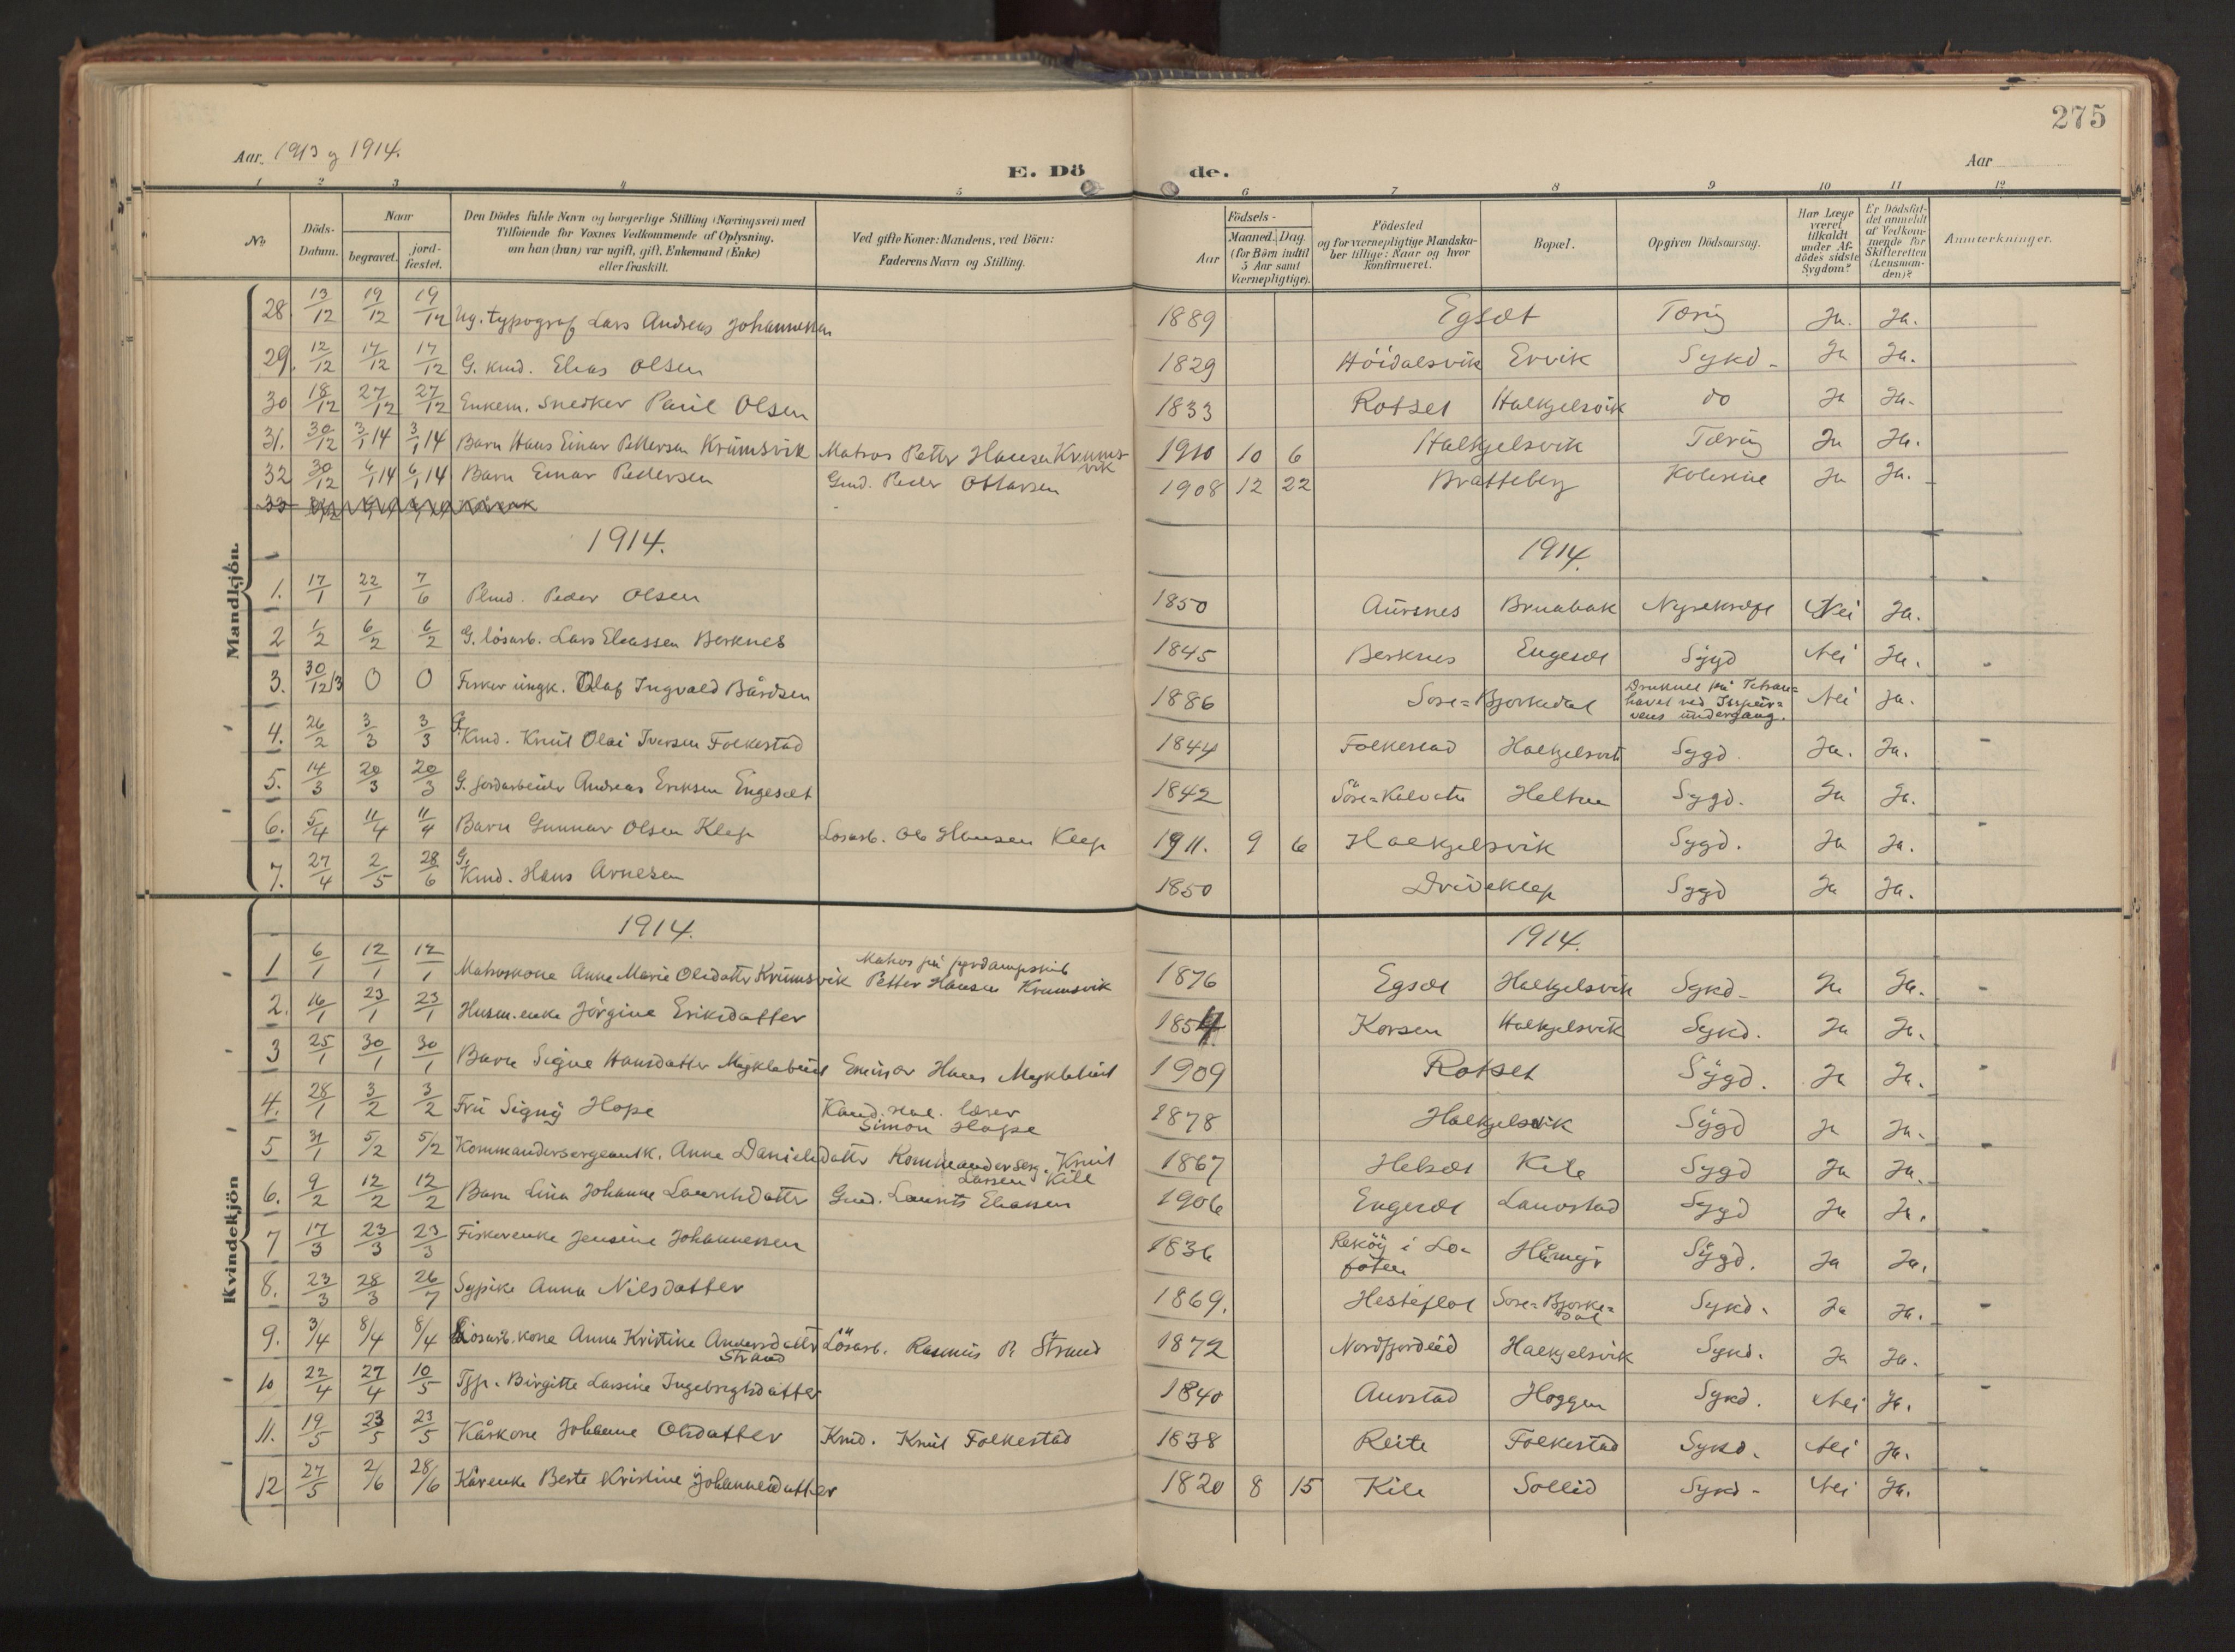 275
Aar 1913 og 1914.
E. Dö de.
Aar
1 2 3 4 5 6 7 8 9 10 11 12
No
Döds-Datum.
Naar
begravet.
jord-fæstet.
Den Dödes fulde Navn og borgerlige Stilling (Næringsvei) med
Tilföiende for Voxnes Vedkommende af Oplysning,
om han (hun) var ugift, gift, Enkemand (Enke)
eller fraskilt.
Ved gifte Koner: Mandens, ved Börn:
Faderens Navn og Stilling.
Födsels-
Aar
Maaned. Dag.
(for Börn indtil
5 Aar samt
Værnepligtige).
Födested
og for værnepligtige Mandska-
ber tillige: Naar og hvor
konfirmeret.
Bopæl.
Opgiven Dödsaarsag.
Har Læge
været
tilkaldt
under Af-
dödes sidste
Sygdom?
Er Dödsfal-
det anmeldt
af Vedkom-
mende for
Skifteretten
(Lensman-
den)?
Anmærkninger.
Mandkjön.
28. 13/12 19/12 19/12 Ug. typograf Lars Andreas Johannesen 1889 Egset Tæring Ja. Ja.
29. 12/12 17/12 17/12 G. kmd. Elias Olsen 1829 Höidalsvik Ervik Sykd- Ja Ja.
30 18/12 27/12 27/12 Enkem. snedker Paul Olsen 1833 Rotset Halkjelsvik do Ja Ja.
31. 30/12 3/1 14 3/1 14 Barn Hans Einar Pettersen Krumsvik Matros Petter Hansen Krumsvik 1910 10 6 Halkjelsvik Tæring Ja Ja.
32 30/12 6/1 14 6/1 14 Barn Einar Pedersen Gmd. Peder Ottarsen 1908 12 22 Bratteberg Kolerine Ja Ja.
33
1914. 1914.
1. 17/1 22/1 7/6 Plmd. Peder Olsen 1850 Aursnes Bruabak Nyrekræft Nei Ja.
2 1/2 6/2 6/2 G. lösarb. Lars Eliassen Berknes 1845 Berknes Engeset Sygd Nei Ja.
3. 30/12 13 0 0 Fisker ungk. Olaf Ingvald Bårdsen 1886 Sore=Bjorkedal Druknet på Ishavet ved undergang. Nei Ja.
4. 26/2 3/3 3/3 G. Kmd. Knut Olai Iversen Folkestad 1844 Folkestad Halkjelsvik Sygd. Ja. Ja.
5. 14/3 20/3 20/3 G. jordarbeider Andreas Eriksen Engeset 1842 Heltne Sygd. Ja Ja.
6. 5/4 11/4 11/4 Barn Gunnar Olsen Klep Losarb. Ole Hansen Klep 1911. 9 6 Halkjelsvik Sygd. Ja Ja.
7. 27/4 2/5 28/6 G. Kmd. Hans Arnesen 1850 Drideklep Sygd Ja Ja.
Kvindekjön
1914. 1914.
1 6/1 12/1 12/1 Matroskone Anne Marie Olsdatter Krumsvik Matros på Petter Hansen Krumsvik 1876 Egset Halkjelsvik Sykd- Ja Ja.
2. 16/1 23/1 23/1 Husm.enke Jörgine Eriksdatter 1854 Korsen Halkjelsvik Sykd. Ja Ja.
3 25/1 30/1 30/1 Barn Signe Hansdatter Myklebust Emisær Hans Myklebust 1909 Rotset Sygd. Ja Ja.
4. 28/1 3/2 3/2 Fru Signy Hope Kand. lærer Simon Hope 1878 Halkjelsvik Sygd Ja Ja.
5 31/1 5/2 5/2 Kommandersergeantk. Anne Danielsdatter Kommanderserg. Knut Larsen Kile 1867 Helset Kile Sygd Ja Ja.
6. 9/2 12/2 12/2 Barn Lina Johanne Lauritsdatter Gmd. Laurits Eliassen 1906 Engeset Lauvstad Sygd Ja Ja.
7 17/3 23/3 23/3 Fiskerenke Jensine Johannessen 1836 Reköy i Lofoten Sygd. Ja Ja.
8. 23/3 28/3 26/7 Sypike Anna Nilsdatter 1869. Hesteflot Sore=Bjorkedal Sykd. Ja Ja.
9. 3/4 8/4 8/4 Lösarb.kone Anna Kristine Andersdatter Strand Lösarb. Rasmus P. Strand 1872 Nordfjordeid Halkjelsvik Sykd. Ja Ja.
10 22/4 27/4 10/5 Tjp. Birgitte Larsine Ingebrigtsdatter 1840 Aurstad Hoggen Sykd. Nei Ja.
11. 19/5 23/5 23/5 Kårkone Johanne Olsdatter Kmd. Knut Folkestad 1838 Reite Folkestad Sykd. Nei Ja.
12 27/5 2/6 28/6 Kårenke Berte Kristine Johannesdatter 1820 8 15 Kile Sollid Sykd- Nei Ja.